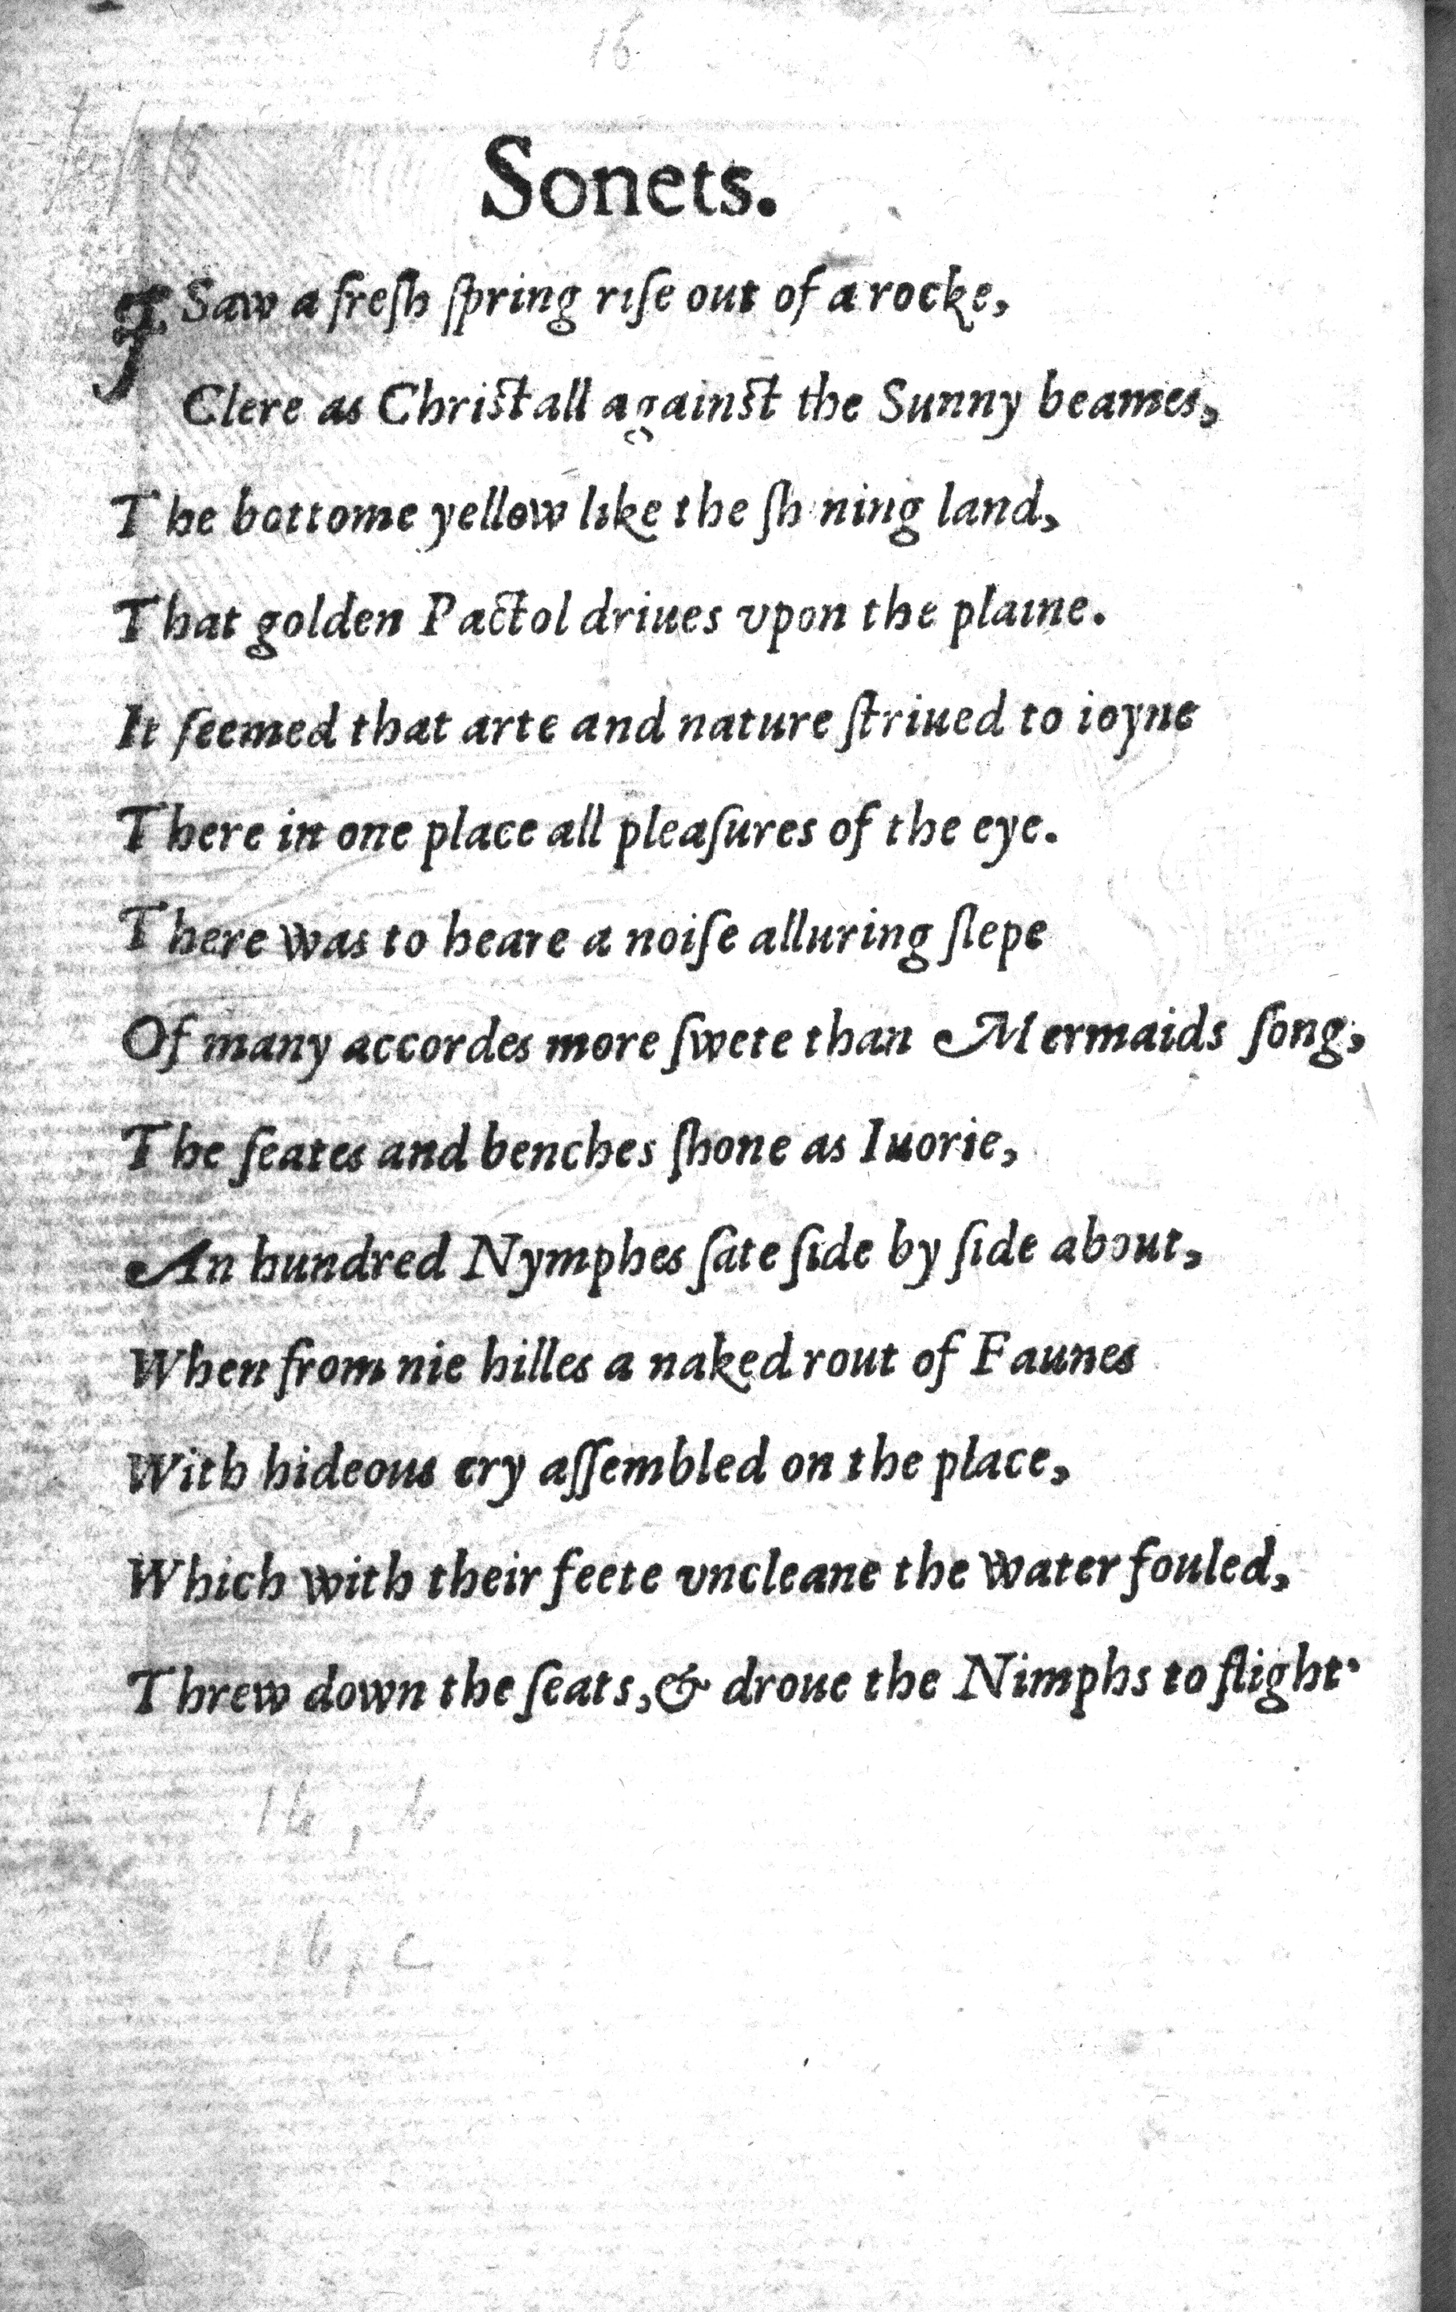 16
Sonets.
I Saw a freſh ſpring riſe out of a rocke,
Clere as Chriſtall againſt the Sunny beames,
The bottome yellow like the ſh ning land,
That golden Pactol driues vpon the plaine.
It ſeemed that arte and nature ſtriued to ioyne
There in one place all pleaſures of the eye.
There was to heare a noiſe alluring ſlepe
Of many accordes more ſwete than Mermaids ſong,
The ſeates and benches ſhone as Iuorie,
An hundred Nymphes ſate ſide by ſide about,
When from nie hilles a naked rout of Faunes
With hideous cry aſſembled on the place,
Which with their feete vncleane the water fouled,
Threw down the ſeats,& droue the Nimphs to flight·
16, b
16, c